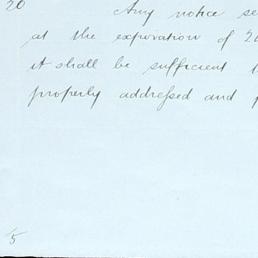 20 Any notice se
at the expiration of 2
it shall be sufficient
properly addressed and
5